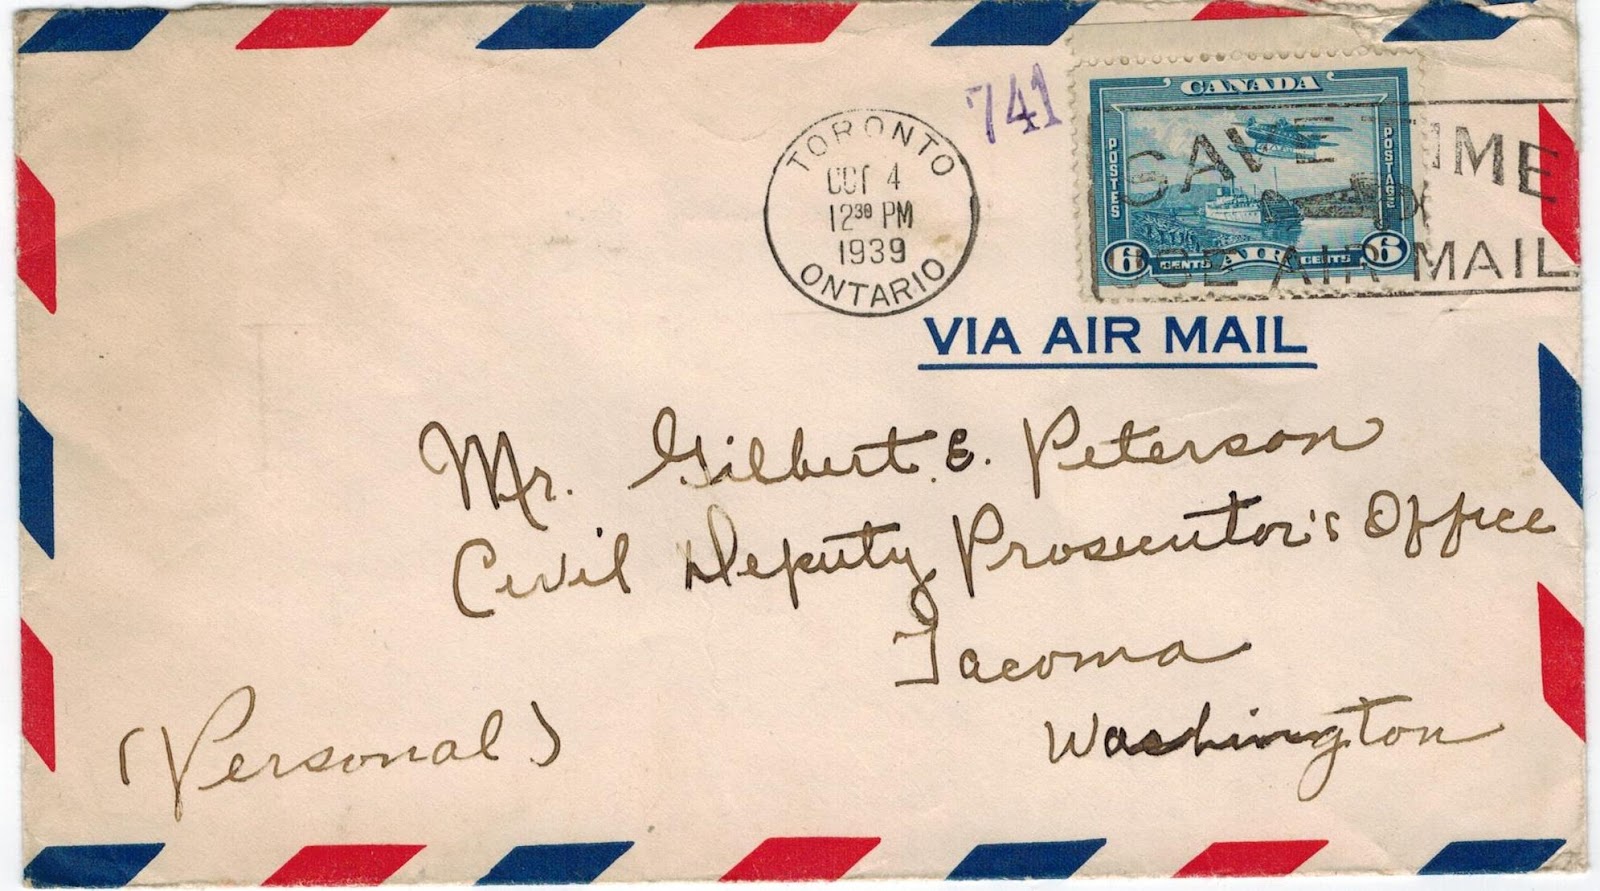 741
TORONTO
OCT 4
12 30 PM
1939
ONTARIO
CANADA
POSTES
POSTAGE
6 CENTS AIR CENTS 6
SAVE TIME
USE AIR MAIL
VIA AIR MAIL
Mr. Gilbert. E. Peterson
Civil Deputy Prosecutor's Office
Tacoma
Washington
(Personal)